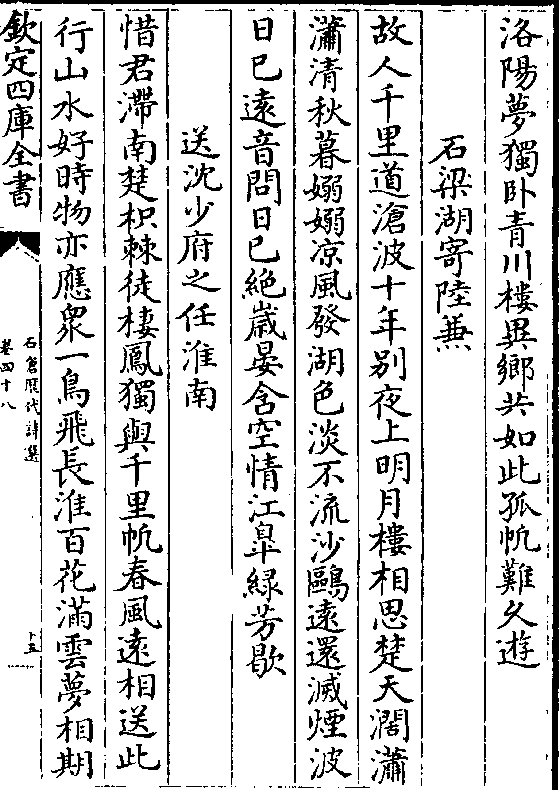 洛陽夢獨卧青川樓異鄉共如此孤帆難久遊
石梁湖寄陸兼
故人千里道滄波十年别夜上明月樓相思楚天濶瀟
瀟清秋暮嫋嫋凉風發湖色淡不流沙鷗遠還滅煙波
日已遠音問日已絶嵗晏含空情江臯緑芳歇
送沈少府之任淮南
惜君滯南楚枳棘徒棲鳳獨與千里帆春風遠相送此
行山水好時物亦應衆一鳥飛長淮百花滿雲夢相期
欽定四庫全書
石倉歷代詩選
卷四十八
十五